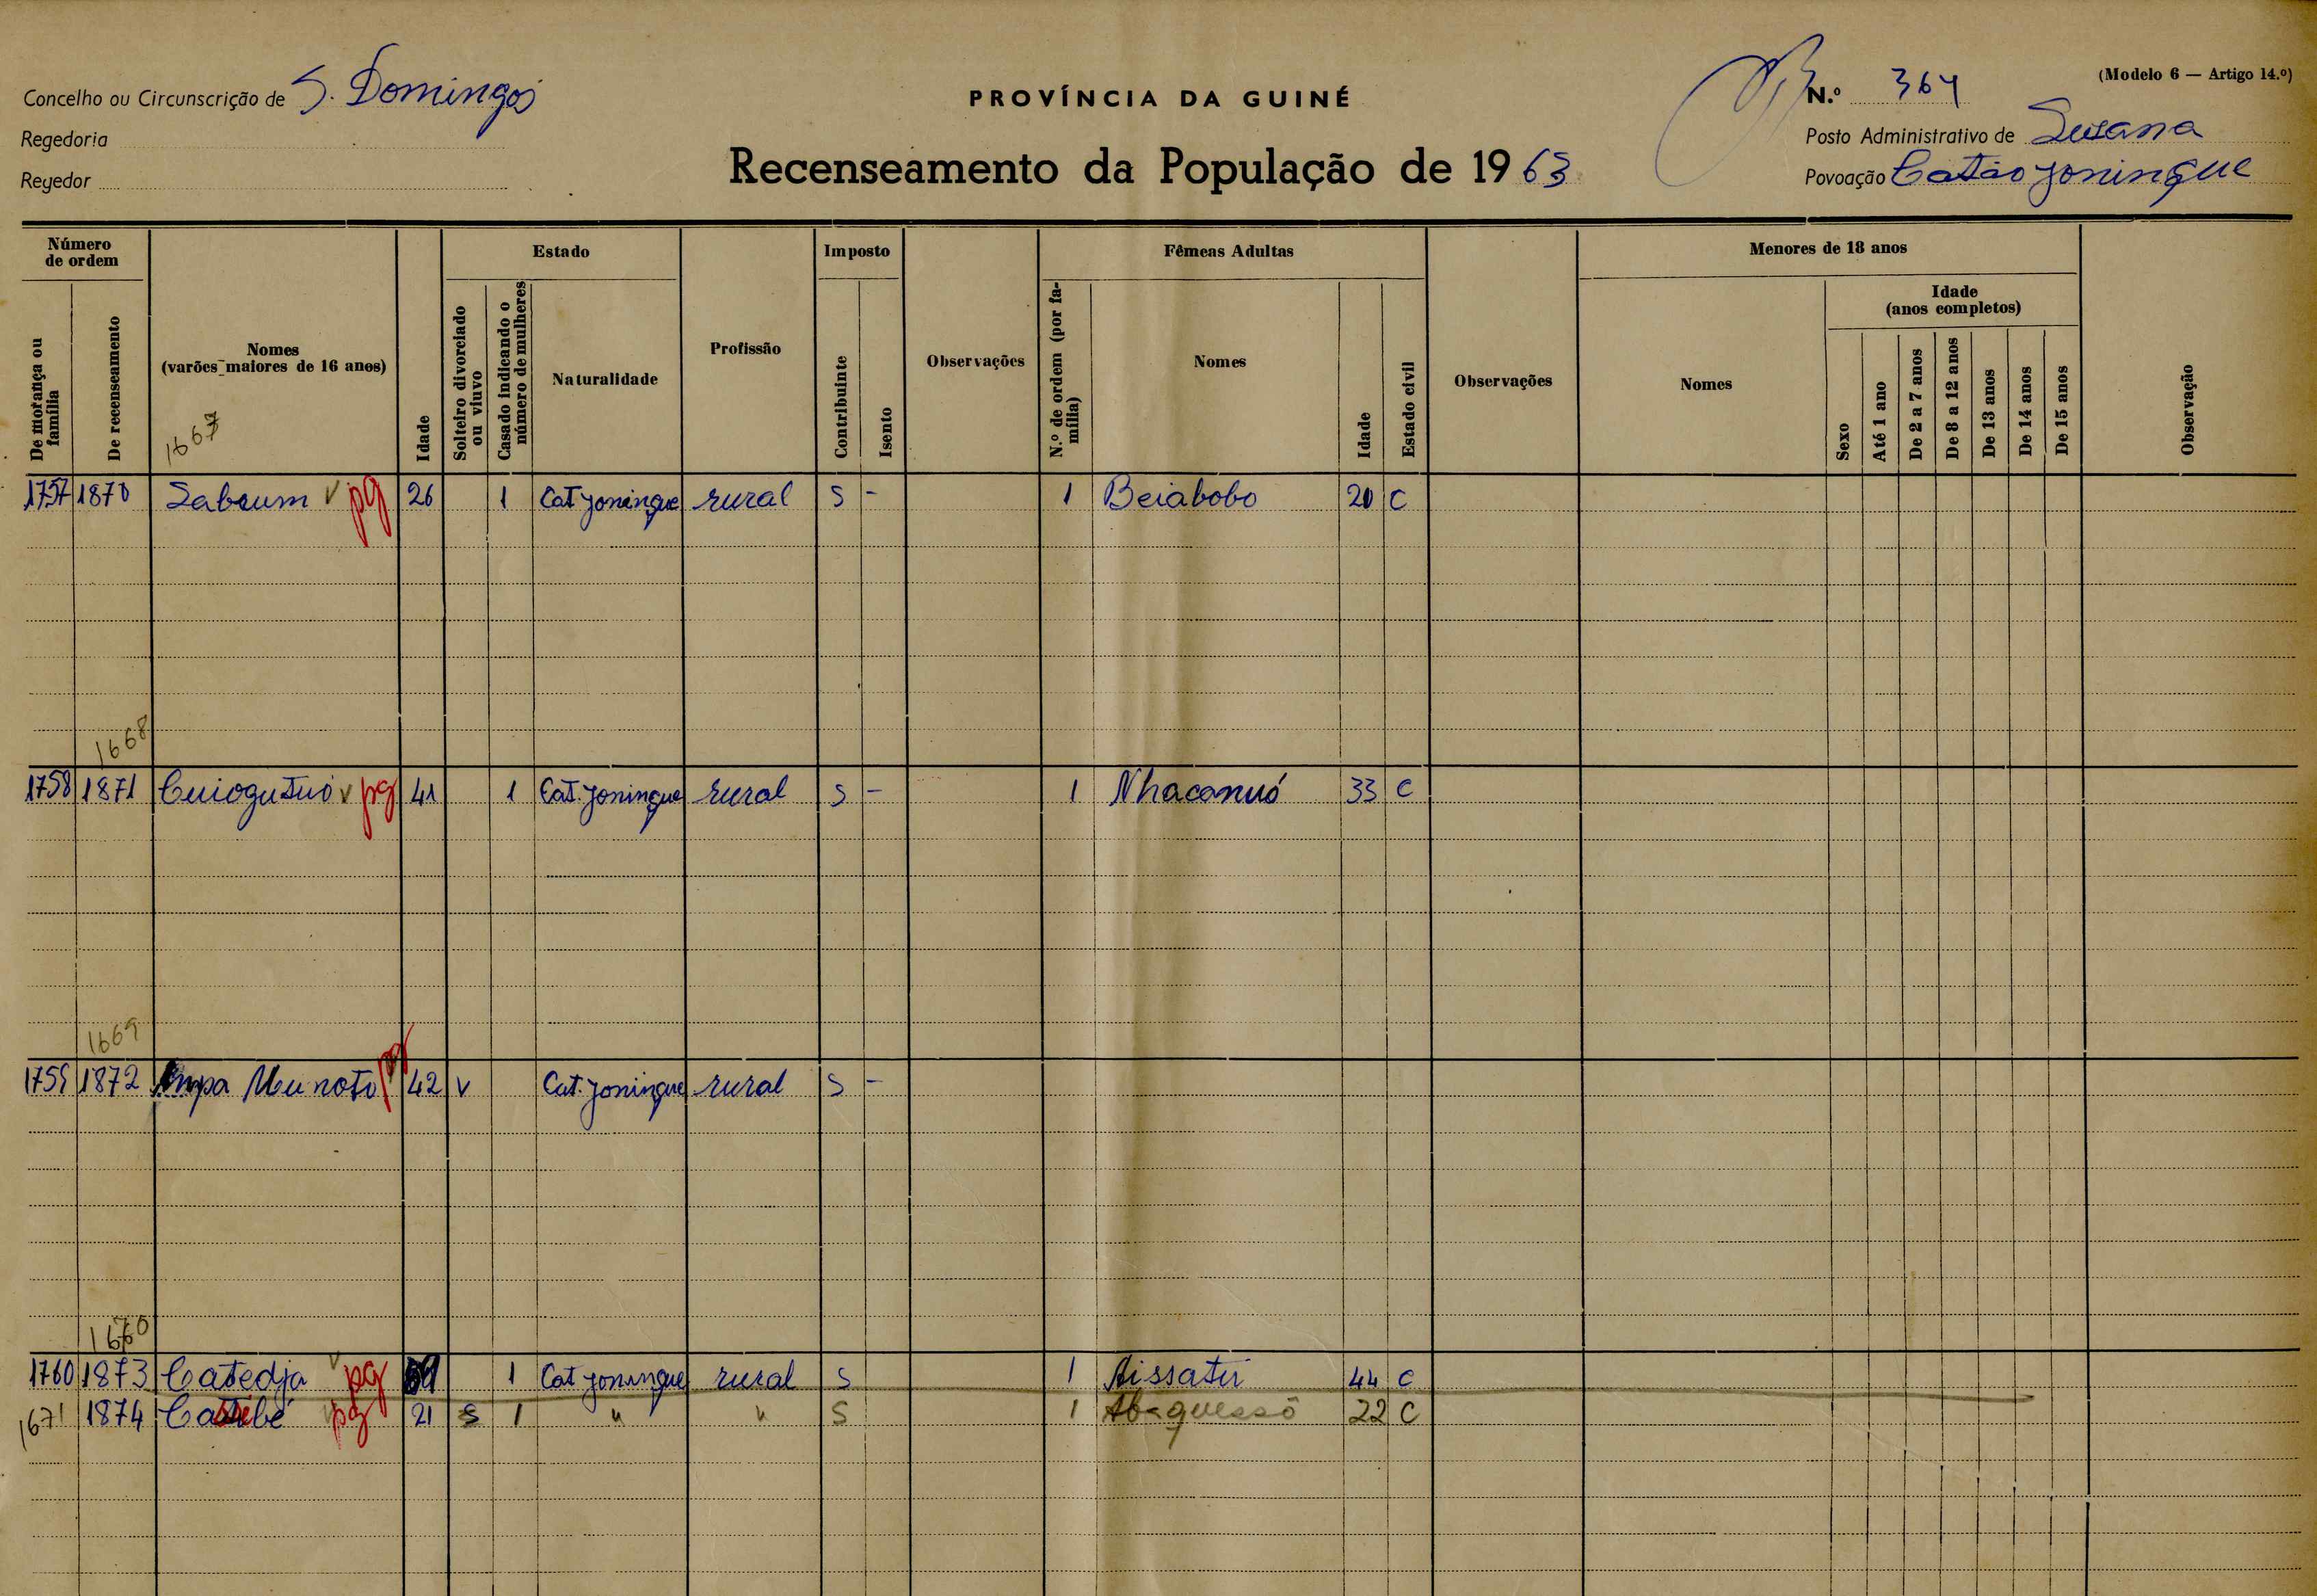 Concelho ou Circunscrição de S. Domingos
Regedoria
Regedor
PROVÍNCIA DA GUINÉ
Recenseamento da População de 1963
(Modelo 6 — Artigo 14.º)
N.º 364
Posto Administrativo de Susana
Povoação Catão Joningue
Número de ordem
De morança ou família
De recenseamento
Nomes (varões maiores de 16 anos)
1667
Idade
Estado
Solteiro divorciado ou viuvo
Casado indicando o número de mulheres
Naturalidade
Profissão
Imposto
Contribuinte
Isento
Observações
Fêmeas Adultas
N.º de ordem (por família)
Nomes
Idade
Estado civil
Observações
Menores de 18 anos
Nomes
Idade (anos completos)
Sexo
Até 1 ano
De 2 a 7 anos
De 8 a 12 anos
De 13 anos
De 14 anos
De 15 anos
Observação
1757 1870 Sabeum v pg 26 1 Cat Joningue rural S - 1 Beiabobo 20 C
1668
1758 1871 Cuiogutuo v pg 41 1 Cat. Joningue rural S - 1 Nhacanuó 33 C
1669
1759 1872 Ampa Munoto pg 42 V Cat. Joningue rural S -
1670
1760 1873 Catedja v pg 1 Cat Joningue rural S 1 Aissatu 44 C
1671 1874 v pg 21 S 1 " " S 1 Abaquessô 22 C